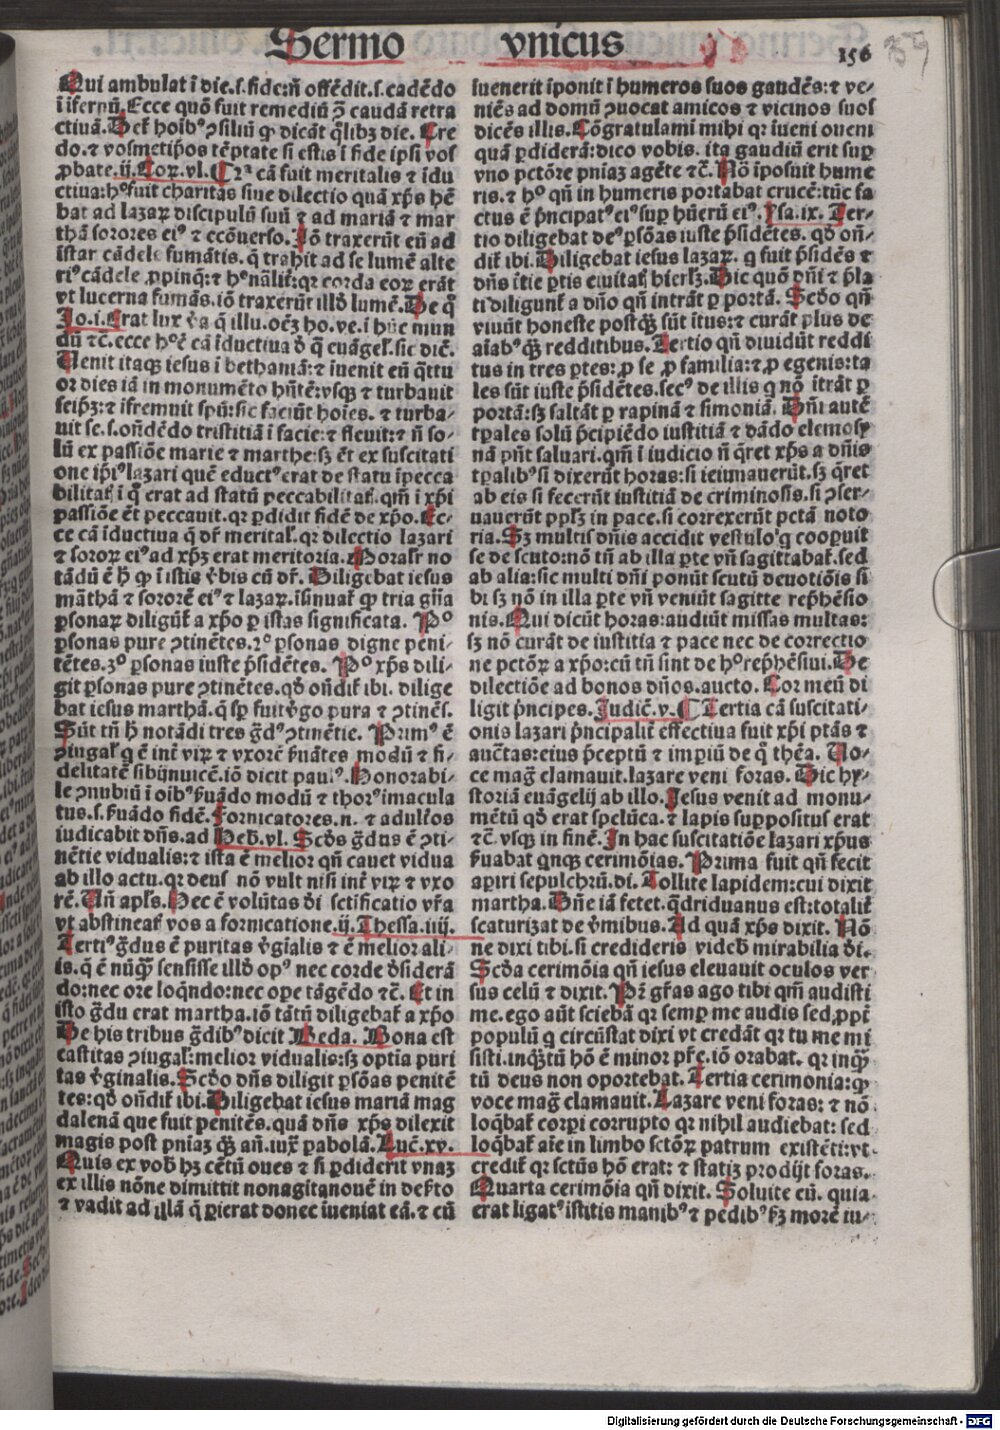 Sermo vnicus
156
39
Qui ambulat ī die.ſ.fide:n̄ offēdit.ſ.cadēdo
ī ifernū. Ecce quō fuit remediū ꝯ caudā retra
ctiuā. Deƀ hoībꝰ ꝯſiliū ꝙ dicāt q̄libꝫ die. Cre
do. ⁊ voſmetipos tēptate ſi eſtis ī fide ipſi voſ
ꝓbate.ij.Coꝝ.vl. ¶ cā fuit meritalis ⁊ īdu
ctiua: hᵒ fuit charitas ſiue dilectio quā xp̄s hē
bat ad lazaꝝ diſcipulū ſuū ⁊ ad mariā ⁊ mar
thā ſorores eiꝰ ⁊ ecōuerſo. Iō traxerūt eū ad
īſtar cādele fumātis. q̄ trahit ad ſe lumē alte
riꝰ cādele ꝓpinq̄: ⁊ hᵒ nāliť: qꝛ corda eoꝝ erāt
vt lucerna fumās. iō traxerūt illd̓ lumē. De q̊
Io.i. Erat lux v̓a q̄ illu.oēꝫ ho.ve.ī hūc mun
dū ⁊c̄. ecce hᵒ ē cā īductiua d̓ q̄ euāgeƚ. ſic dic̄.
Uenit itaqꝫ ieſus ī bethaniā: ⁊ iuenit eū q̄ttu
or dies iā in monumēto hn̄tē: vſqꝫ ⁊ turbauit
ſeipꝫ: ⁊ ifremuit ſpū: ſic faciūt hoīes. ⁊ turba⸗
uit ſe.ſ.oſīdēdo triſtitiā ī facie: ⁊ fleuit: ⁊ n̄ ſo⸗
lū ex paſſiōe marie ⁊ marthe: ſꝫ ēt ex ſuſcitati
one ip̄iꝰ lazari quē eductꝰ erat de ſtatu īpecca
bilitaſ ī q̊ erat ad ſtatū peccabilitaſ. qm̄ ī xp̄i
paſſiōe ēt peccauit. qꝛ ꝑdidit fidē de xp̄o. Ec⸗
ce cā īductiua q̄ dr̄ meritaƚ. qꝛ dilectio lazari
⁊ ſoroꝝ eiꝰ ad xp̄ꝫ erat meritoria. Moraƚr no
tādū ē ꝙ ī iſtis v̓bis cū dr̄. Diligebat ieſus
māthā ⁊ ſororē eiꝰ ⁊ lazaꝝ. īſinuaƭ ꝙ tria gn̄a
ꝑſonaꝝ diligūƭ a xp̄o ꝑ iſtas ſignificata. Pᵒ
ꝑſonas pure ꝯtinētes. 2ᵒ ꝑſonas digne peni⸗
tētes. 3ᵒ ꝑſonas iuſte p̄ſidētes. Pᵒ xp̄s dili⸗
git ꝑſonas pure ꝯtinētes. qd̓ on̄diƭ ibi. dilige
bat ieſus marthā. q̄ ſꝑ fuit v̓go pura ⁊ ꝯtinēſ.
Sūt tn̄ notādi tres g̓dꝰ ꝯtinētie. Primꝰ ē
ꝯiugaƚ q̄ ē int̓ viꝝ ⁊ vxorē ẜuātes modū ⁊ fi⸗
delitatē ſibijnuicē. iō dicit paulꝰ. Honorabi⸗
le ꝯnubiū ī oībꝰ ẜuādo modū ⁊ thorꝰ imacula
tus.ſ.ẜuādo fidē. Fornicatores.n. ⁊ adulťos
iudicabit dn̄s. ad Heb̓.vl. Scd̓s g̓dus ē ꝯti⸗
nētie vidualis: ⁊ iſta ē melior qn̄ cauet vidua
ab illo actu. qꝛ deuſ nō vult niſi int̓ viꝝ ⁊ vxo
rē. Un̄ apƚs. Hec ē volūtas d̓i ſctificatio vr̄a
vt abſtineaſ vos a fornicatione. ij. Theſſa.iiij.
Tertiꝰ g̓dus ē puritas v̓gīalis ⁊ ē melior ali⸗
is. q̄ ē nūꝙ̄ ſenſiſſe illd̓ opꝰ nec corde d̓ſiderā
do: nec ore loq̄ndo: nec ope tāgēdo ⁊c̄. Et in
iſto g̓du erat martha. iō tātū diligebaƭ a xp̄o
De his tribus g̓dibꝰ dicit Beda. Bona eſt
caſtitas ꝯiugaƚ: melior vidualis: ſꝫ optīa puri
tas v̓ginalis. Scd̓o dn̄s diligit ꝑſōas penitē
tes: qd̓ on̄diƭ ibi. Diligebat ieſus mariā mag
dalenā que fuit penitēs. quā dn̄s xp̄s dilexit
magis poſt pn̄iaꝫ ꝙ̄ an̄. iux̄ ꝑabolā. Luc̄.xv.
Quis ex vob̓ hꝫ cētū oues ⁊ ſi ꝑdiderit vnaꝫ
ex illis nōne dimittit nonagītanouē in deſ̓to
⁊ vadit ad illā q̄ ꝑierat donec iueniat eā. ⁊ cū
iuenerit īponit ī humeros ſuos gaudēs: ⁊ ve⸗
niēs ad domū ꝯuocat amicos ⁊ vicinos ſuoſ
dicēs illis. Cōgratulamī mihi qꝛ iueni ouem
quā ꝑdiderā: dico vobis. ita gaudiū erit ſuꝑ
vno pctōre pn̄iaꝫ agēte ⁊c̄. Nō īpoſuit hume
ris. ⁊ hᵒ qn̄ in humeris portabat crucē: tūc fa
ctus ē p̄ncipatꝰ eiꝰ ſuꝑ hūerū eiꝰ. Iſa.ix. Ter⸗
tio diligebat deꝰ ꝑſōas iuſte p̄ſidētes. qd̓ on̄⸗
diƭ ibi. Diligebat ieſus lazaꝝ. q̄ fuit p̄ſidēs ⁊
dn̄s ītie ꝑtis ciuitaſ hierƚꝫ. Dic quō dn̄i ⁊ p̄la
ti diligunƭ a dn̄o qn̄ intrāt ꝑ portā. Scd̓o qn̄
viuūt honeſte poſtꝙ̄ ſūt ītus: ⁊ curāt plus de
aīabꝰ ꝙ̄ redditibus. Tertio qn̄ diuidūt reddi
tus in tres ꝑtes: ꝓ ſe ꝓ familia: ⁊ ꝓ egenis: ta
les ſūt iuſte p̄ſidētes. ſecꝰ de illis q nō itrāt ꝑ
portā: ſꝫ ſaltāt ꝑ rapinā ⁊ ſimoniā. Dn̄i autē
tꝑales ſolū p̄cipiēdo iuſtitiā ⁊ dādo elemoſy
nā pn̄t ſaluari. qm̄ ī iudicio n̄ q̄ret xp̄s a dn̄is
tꝑalibꝰ ſi dixerūt horas: ſi ieiunauerūt. ſꝫ q̄ret
ab eis ſi fecerūt iuſtitiā de criminoſis. ſi ꝯſer⸗
uauerūt ppƚꝫ in pace. ſi correxerūt pctā noto
ria. Sꝫ multis dn̄is accidit veſtulo q̄ cooꝑuit
ſe de ſcuto: nō tn̄ ab illa ꝑte vn̄ ſagittabaƭ. ſed
ab alia: ſic multi dn̄i ponūt ſcutū deuotiōis ſi
bi ſꝫ nō in illa ꝑte vn̄ veniūt ſagitte rep̄hēſio
nis. Qui dicūt horas: audiūt miſſas multas:
ſꝫ nō curāt de iuſtitia ⁊ pace nec de correctio
ne pctōꝝ a xp̄o: cū tn̄ ſint de hᵒ rep̄hēſiui. De
dilectiōe ad bonos dn̄os. aucto. Cor meū di
ligit p̄ncipes. Iudic̄.v. ¶ Tertia cā ſuſcitati⸗
onis lazari p̄ncipaliƭ effectiua fuit xp̄i ptās ⁊
auct̄as: eius p̄ceptū ⁊ imꝑiū de q̊ thēa. Uo⸗
ce mag̓ clamauit. lazare veni foras. Dic hy⸗
ſtoriā euāgelij ab illo. Jeſus venit ad monu⸗
mētū qd̓ erat ſpelūca. ⁊ lapis ſuppoſitus erat
⁊c̄ vſqꝫ in finē. In hac ſuſcitatiōe lazari xp̄us
ẜuabat q̄nqꝫ cerimōias. Prima fuit qn̄ fecit
aꝑiri ſepulchrū. di. Tollite lapidem: cui dixit
martha. Dn̄e iā fetet. q̄driduanus eſt: totaliƭ
ſcaturizat de v̓mibus. Ad quā xp̄s dixit. Nō
ne dixi tibi. ſi credideris videb̓ mirabilia d̓i.
Scd̓a cerimōia qn̄ ieſus eleuauit oculos ver
ſus celū ⁊ dixit. Pr̄ gr̄as ago tibi qm̄ audiſti
me. ego aūt ſciebā qꝛ ſemꝑ me audis ſed ꝓpƭ
populū q circūſtat dixi vt credāt qꝛ tu me mi
ſiſti. inꝙ̄tū hō ē minor pr̄e. iō orabat. qꝛ inꝙ̄
tū deus non oportebat. Tertia cerimonia: ꝙ
voce mag̓ clamauit. Lazare veni foras: ⁊ nō
loq̄baƭ corpi corrupto qꝛ nihil audiebat: ſed
loq̄baƭ aīe in limbo ſctōꝝ patrum exiſtēti: vt
crediƭ qꝛ ſctūs hō erat: ⁊ ſtatiꝫ prodijt foras.
Quarta cerimōia qn̄ dixit. Soluite eū. quia
erat ligatꝰ iſtitis manibꝰ ⁊ pedibꝰ ẜꝫ morē iu⸗
Digitalisierung gefördert durch die Deutsche Forschungsgemeinschaft - DFG